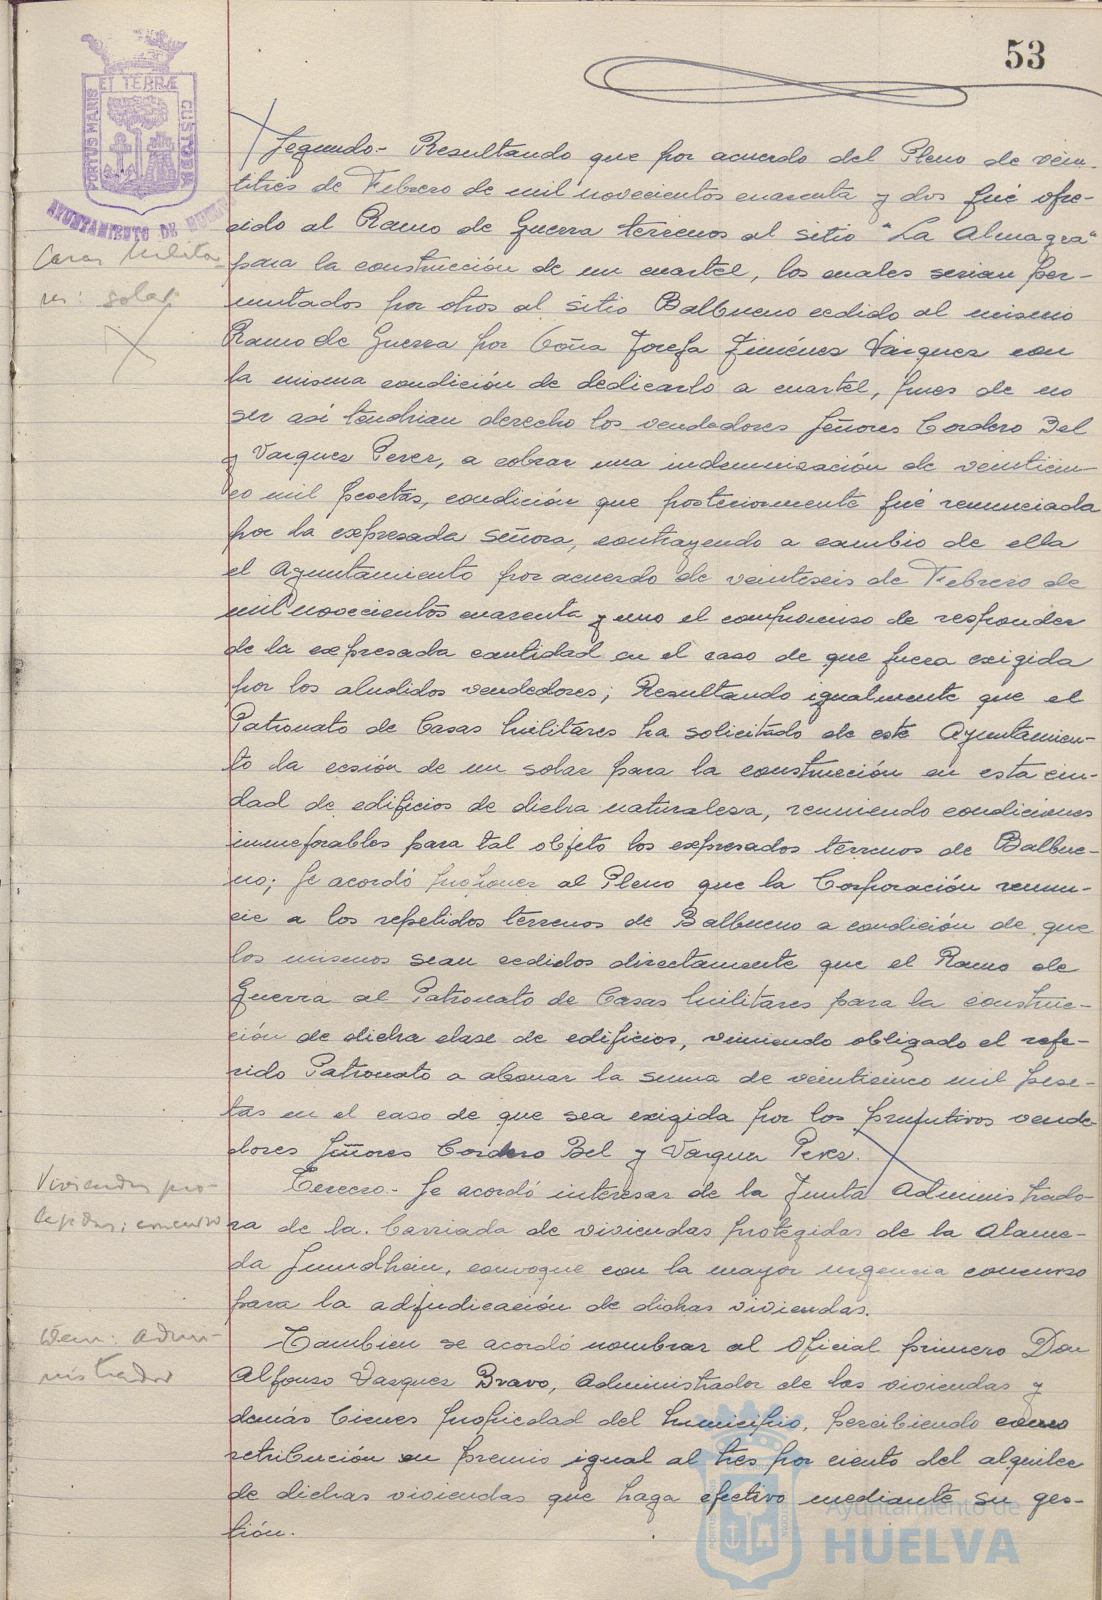 53
PORTUS MARIS ET TERRÆ CUSTODIA
AYUNTAMIENTO DE HUELVA
Segundo.- Resultando que por acuerdo del Pleno de vein-
titrés de Febrero de mil novecientos cuarenta y dos fué ofre-
cido al Ramo de Guerra terrenos al sitio "La Almagra"
Casas Milita-
para la construcción de un cuartel, los cuales serian per-
res: solar
mutados por otros al sitio Balbueno cedido al mismo
Ramo de Guerra por Doña Josefa Jiménez Vázquez con
la misma condición de dedicarlo a cuartel, pues de no
ser asi tendrian derecho los vendedores Señores Cordero Bel
y Vazquez Perez, a cobrar una indemnización de veinticin-
co mil pesetas, condición que posteriormente fué renunciada
por la expresada señora, contrayendo a cambio de ella
el Ayuntamiento por acuerdo de veintiseis de Febrero de
mil novecientos cuarenta y uno el compromiso de responder
de la expresada cantidad en el caso de que fuera exigida
por los aludidos vendedores; Resultando igualmente que el
Patronato de Casas Militares ha solicitado de este Ayuntamien-
to la cesión de un solar para la construcción en esta ciu-
dad de edificios de dicha naturaleza, reuniendo condiciones
inmejorables para tal objeto los expresados terrenos de Balbue-
no; Se acordó proponer al Pleno que la Corporación renun-
cie a los repetidos terrenos de Balbueno a condición de que
los mismos sean cedidos directamente que el Ramo de
Guerra al Patronato de Casas Militares para la construc-
ción de dicha clase de edificios, viniendo obligado el refe-
rido Patronato a abonar la suma de veinticinco mil pese-
tas en el caso de que sea exigida por los primitivos vende-
dores Señores Cordero Bel y Vazquez Perez.
Viviendas pro-
Tercero.- Se acordó interesar de la Junta Administrado-
tegidas; concurso
ra de la Barriada de viviendas protegidas de la Alame-
da Sundheim, convoque con la mayor urgencia concurso
para la adjudicación de dichas viviendas.
Idem: Admi-
Tambien se acordó nombrar al Oficial primero Don
nistrador
Alfonso Vazquez Bravo, Administrador de las viviendas y
demás bienes propiedad del Municipio, percibiendo como
retribución un premio igual al tres por ciento del alquiler
de dichas viviendas que haga efectivo mediante su ges-
tión.
Ayuntamiento de
HUELVA